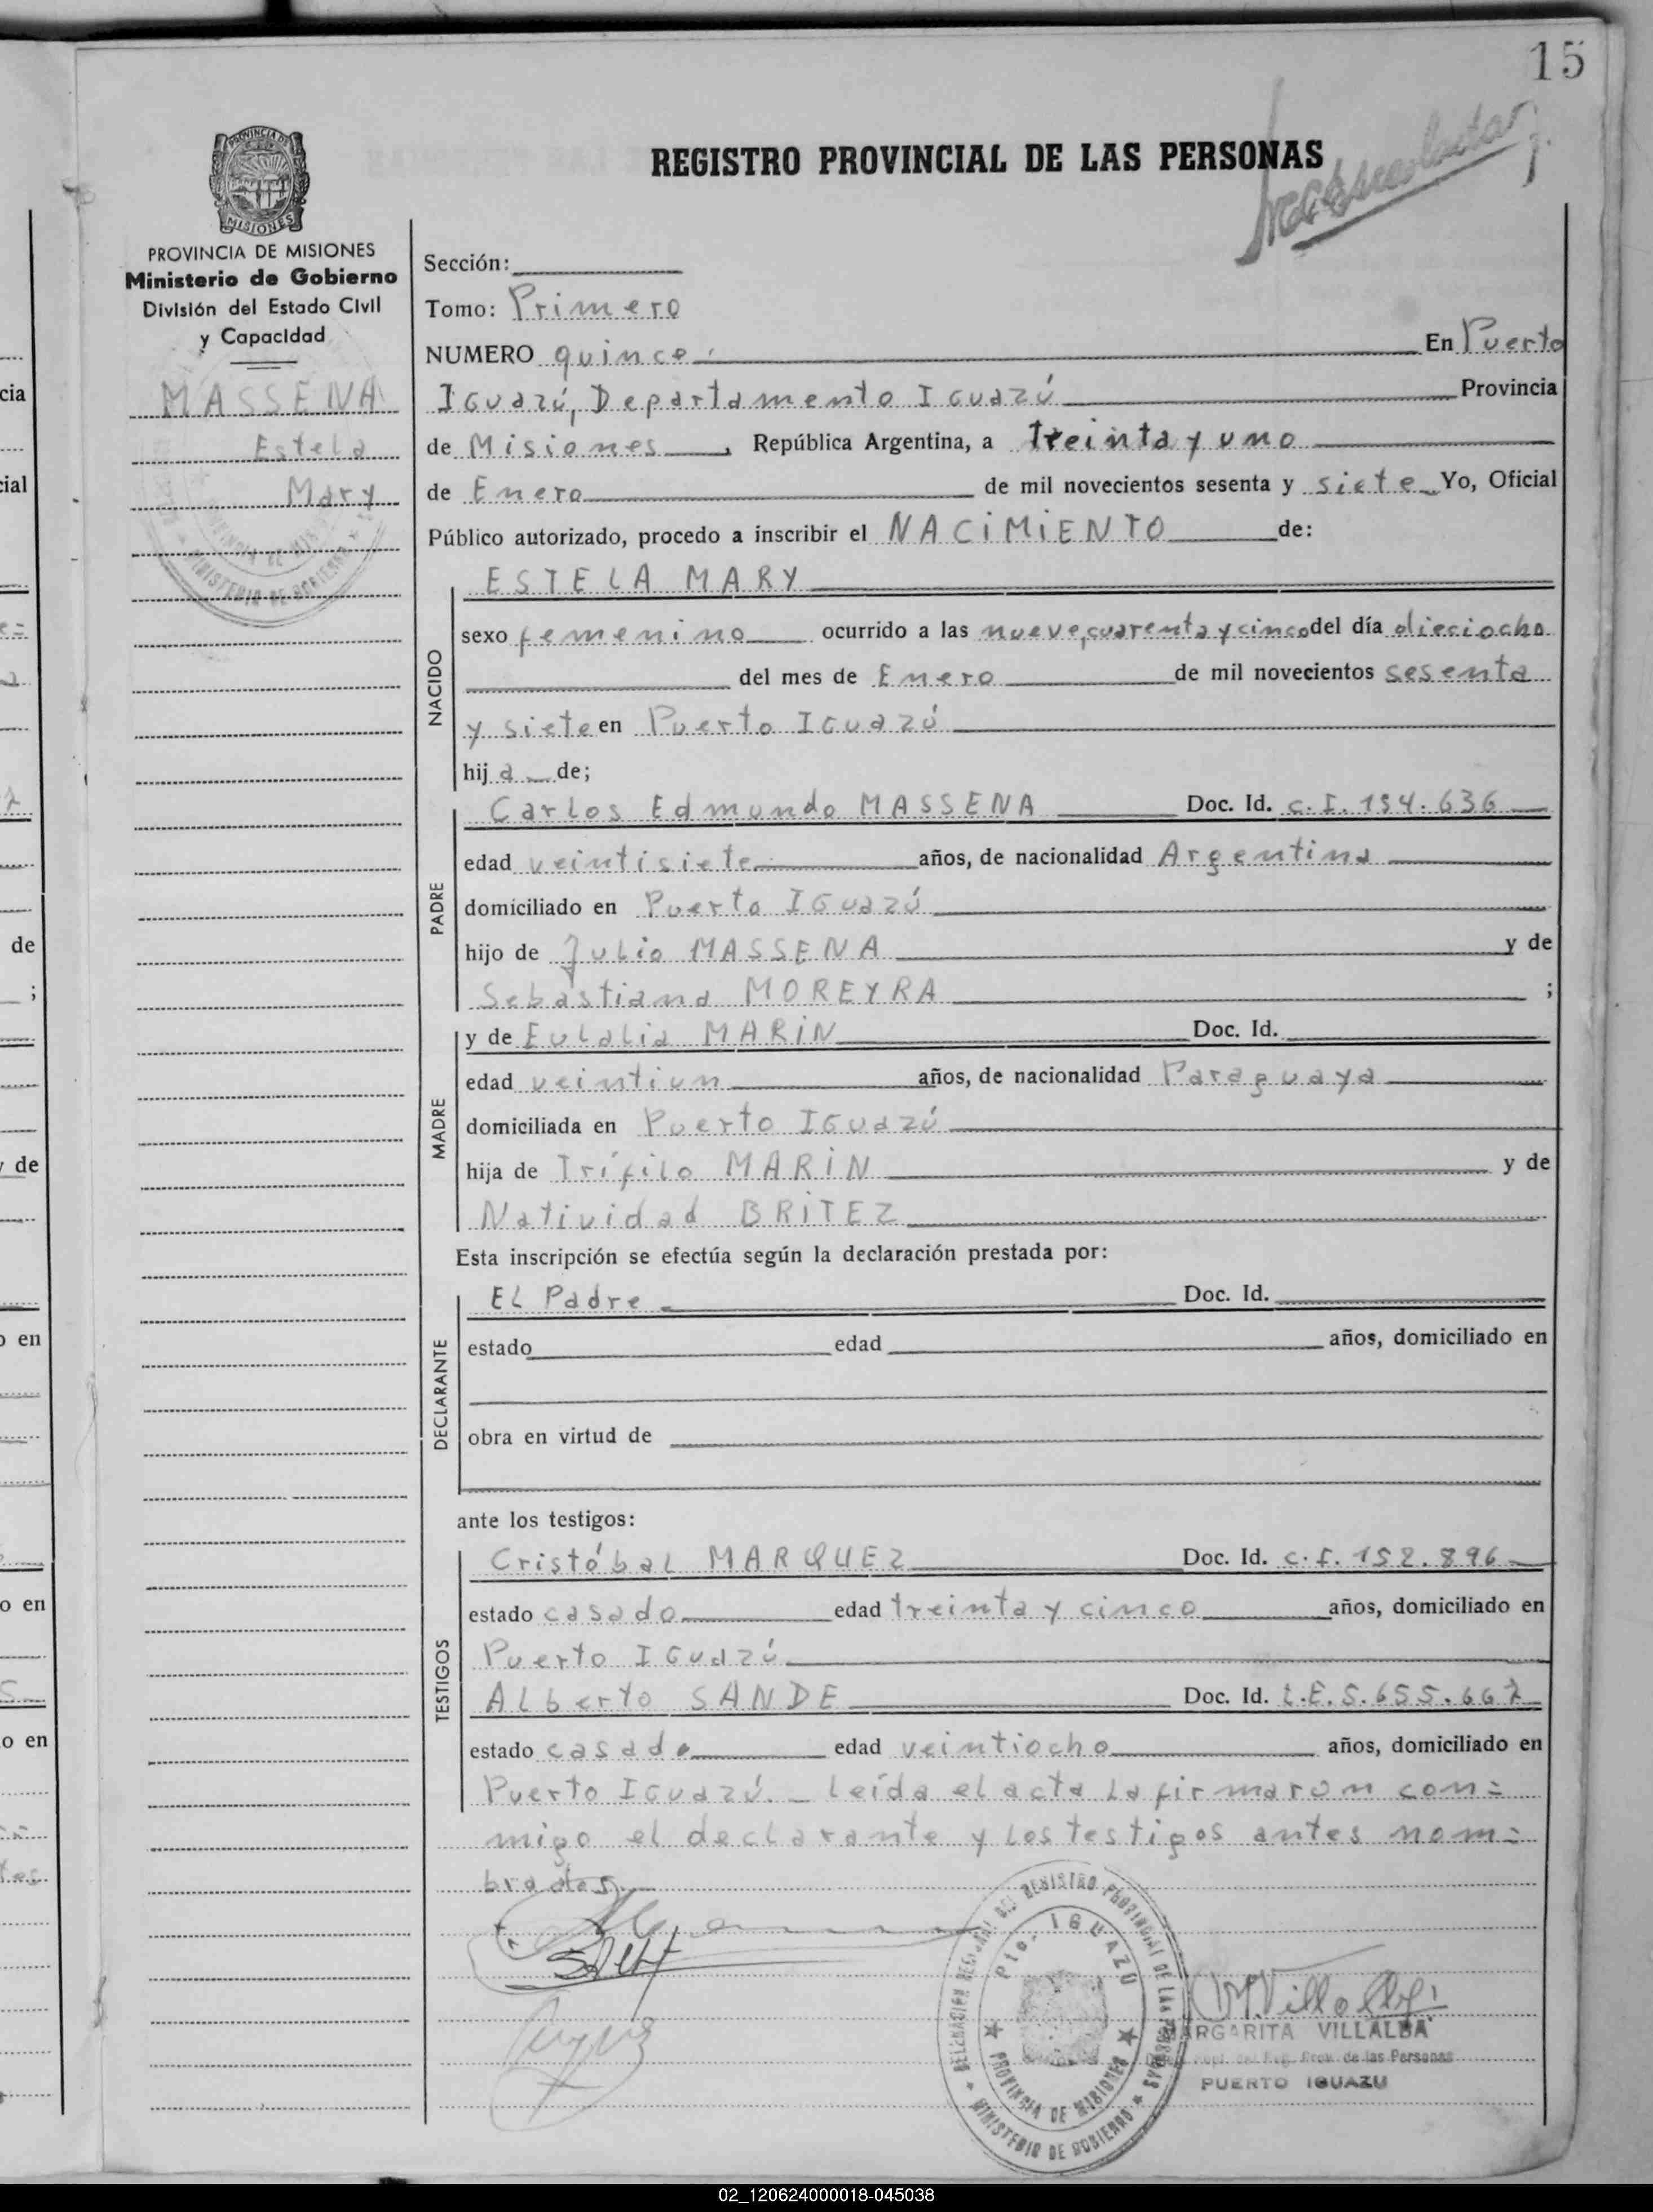 15
REGISTRO PROVINCIAL DE LAS PERSONAS
PROVINCIA DE MISIONES
Ministerio de Gobierno
División del Estado Civil
y Capacidad
MASSENA
Estela
Mary
Sección:
Tomo: Primero
NUMERO quince. En Puerto
Iguazú, Departamento Iguazú Provincia
de Misiones, República Argentina, a treinta y uno
de Enero de mil novecientos sesenta y siete Yo, Oficial
Público autorizado, procedo a inscribir el NACIMIENTO de:
NACIDO
ESTELA MARY
sexo femenino ocurrido a las nueve, cuarenta y cinco del día dieciocho
del mes de Enero de mil novecientos sesenta
y siete en Puerto Iguazú
hij a de;
PADRE
Carlos Edmundo MASSENA Doc. Id. C.I. 154.636
edad veintisiete años, de nacionalidad Argentina
domiciliado en Puerto Iguazú
hijo de Julio MASSENA y de
Sebastiana MOREYRA ;
MADRE
y de Eulalia MARIN Doc. Id.
edad veintiun años, de nacionalidad Paraguaya
domiciliada en Puerto Iguazú
hija de Trífilo MARIN y de
Natividad BRITEZ
Esta inscripción se efectúa según la declaración prestada por:
DECLARANTE
El Padre Doc. Id.
estado edad años, domiciliado en
obra en virtud de
ante los testigos:
TESTIGOS
Cristóbal MARQUEZ Doc. Id. C.I. 152.896
estado casado edad treinta y cinco años, domiciliado en
Puerto Iguazú
Alberto SANDE Doc. Id. L.E. 5.655.667
estado casado edad veintiocho años, domiciliado en
Puerto Iguazú. Leída el acta la firmaron con=
migo el declarante y los testigos antes nom=
brados
DELEGACION REGIONAL DEL REGISTRO PROVINCIAL DE LAS PERSONAS
Pto. IGUAZU
PROVINCIA DE MISIONES
MINISTERIO DE GOBIERNO
MARGARITA VILLALBA
Prov. de las Personas
PUERTO IGUAZU
02_120624000018-045038